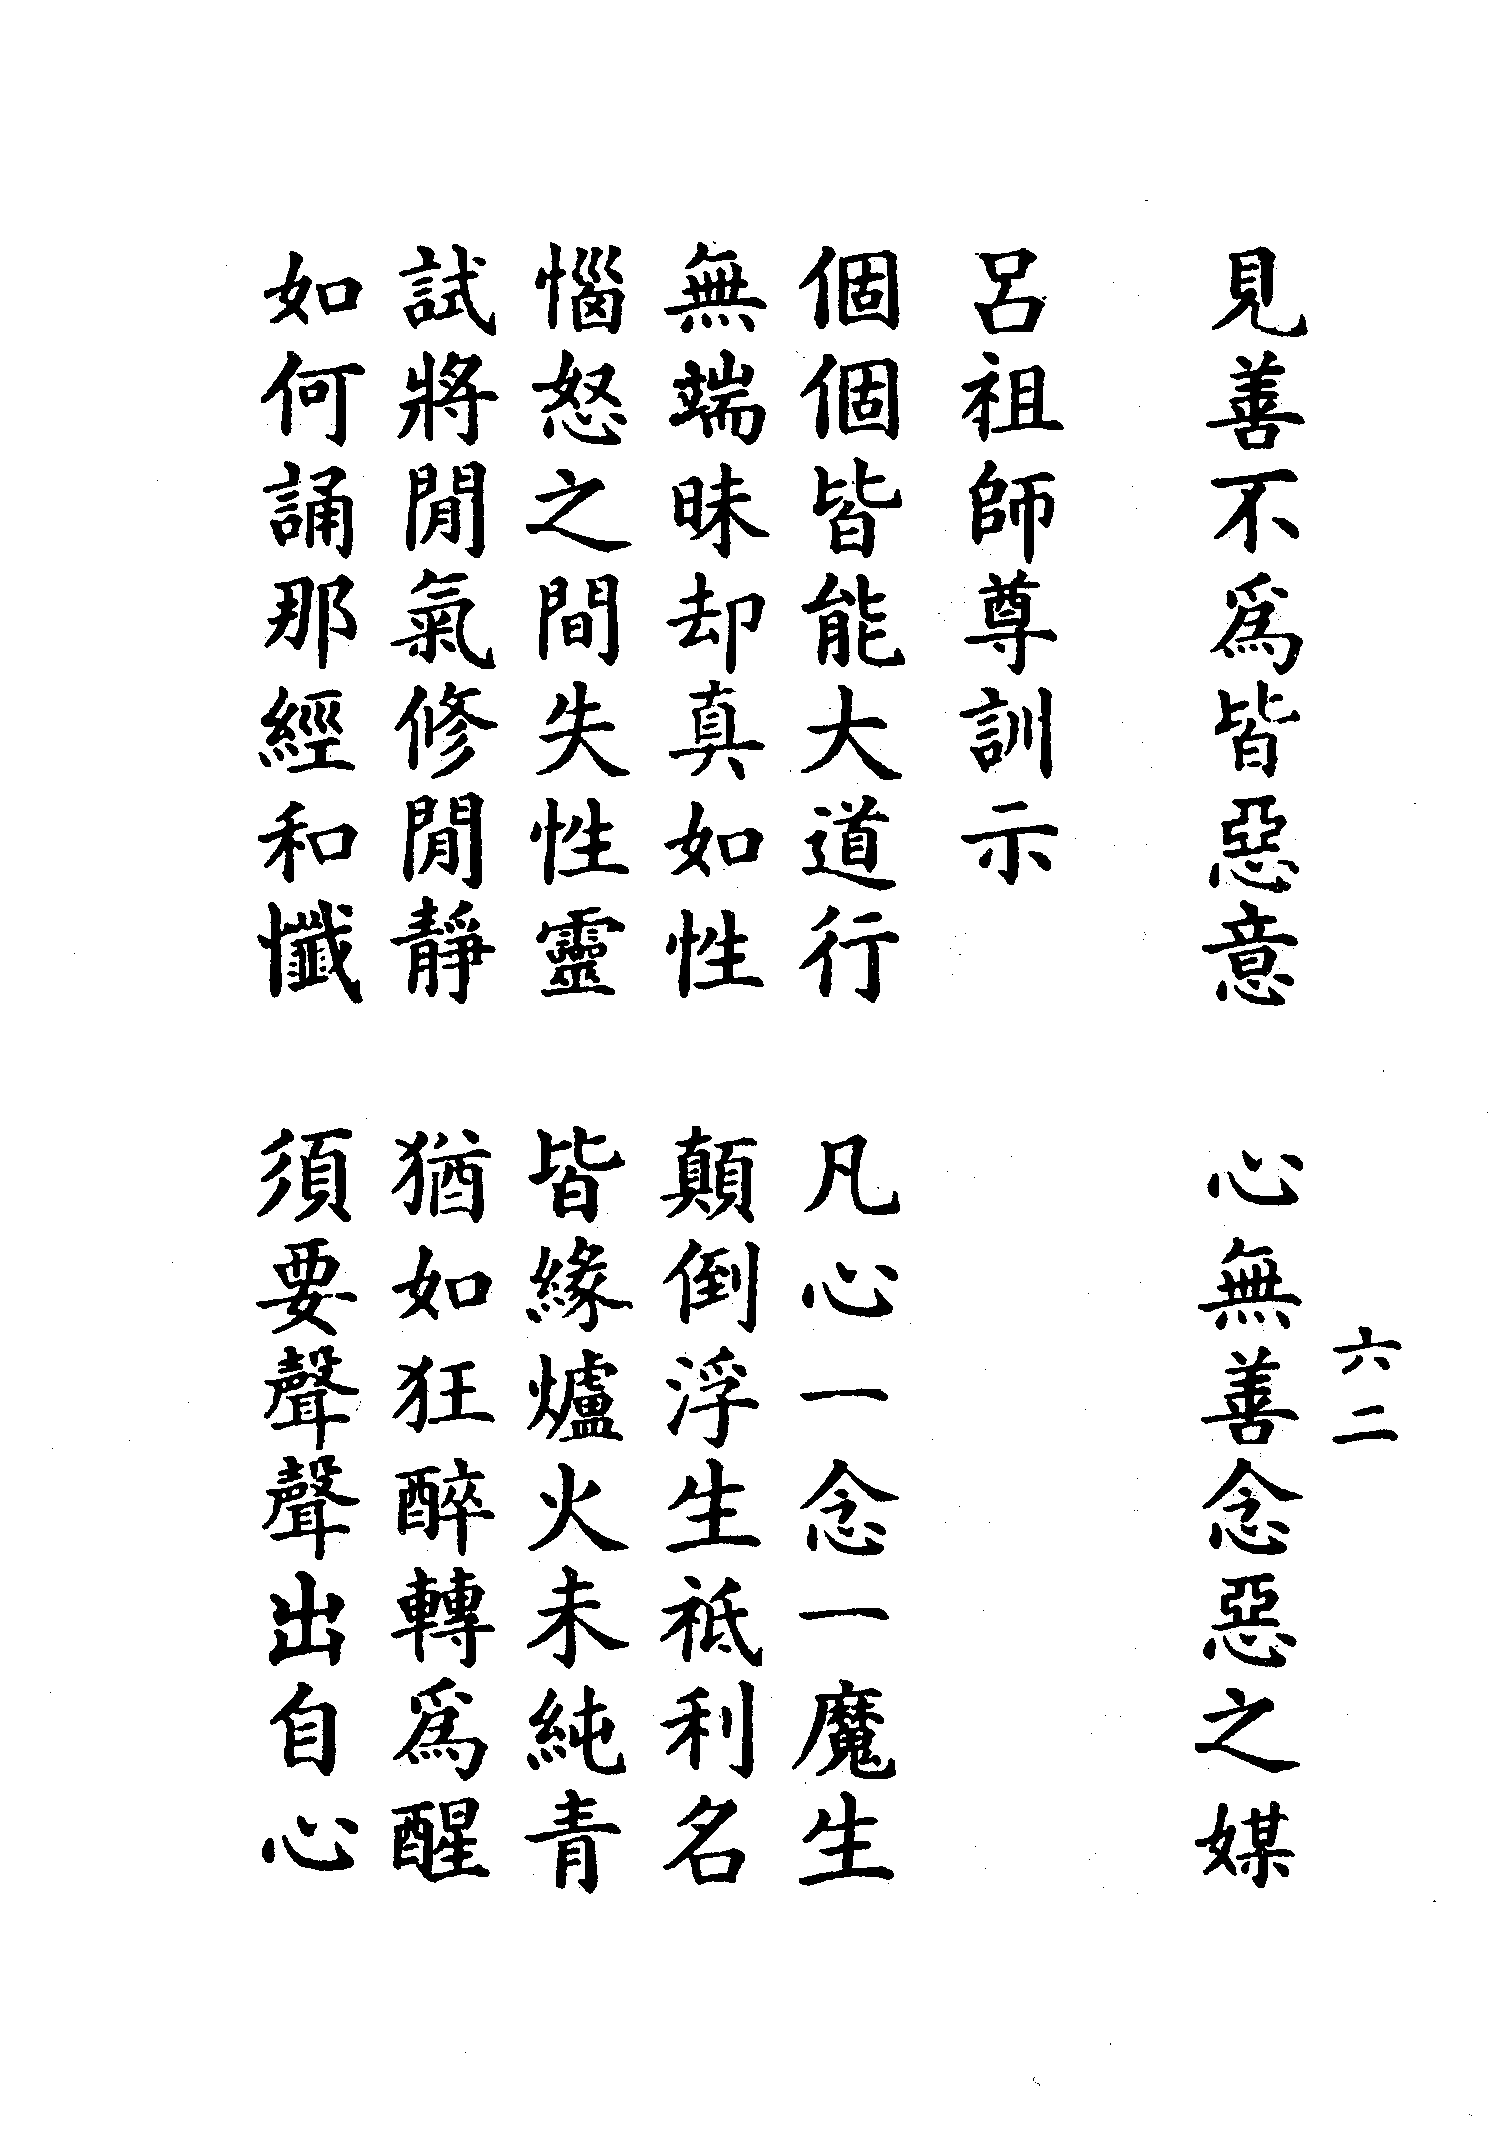 六二
見善不爲皆惡意　心無善念惡之媒
呂祖師尊訓示
個個皆能大道行　凡心一念一魔生
無端昧却真如性　顛倒浮生祗利名
惱怒之間失性靈　皆緣爐火未純青
試將閒氣修閒靜　猶如狂醉轉爲醒
如何誦那經和懺　須要聲聲出自心